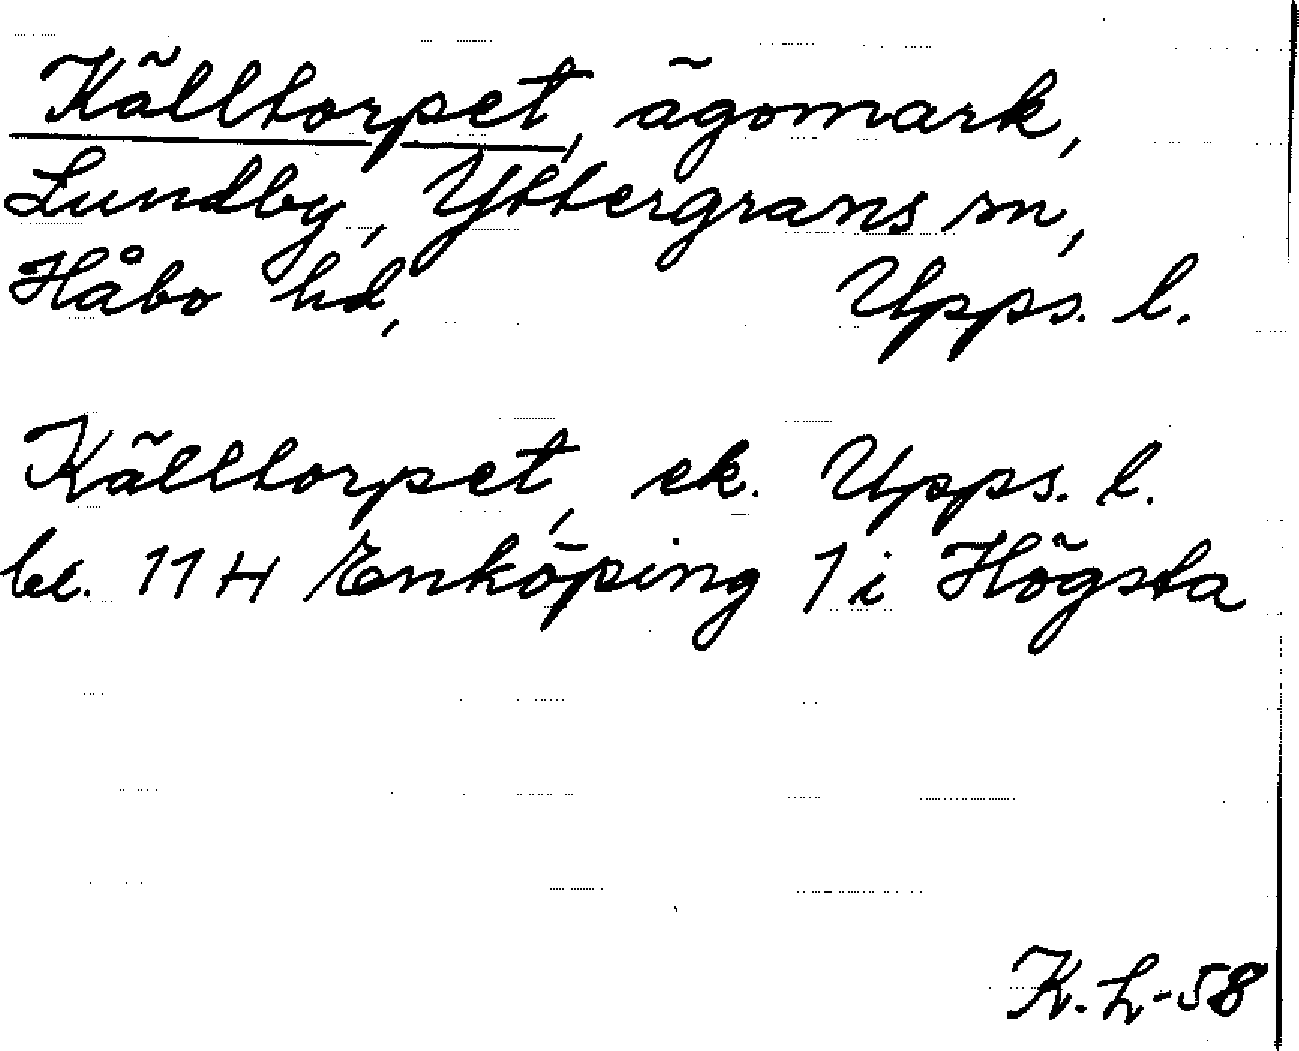 Källtorpet, ägomark,
Lundby, Yttergrans sn,
Håbo hd, Upps. l.
Källtorpet, ek. Upps. l.
bl. 11 H Enköping 1 i Högsta
K. L-58